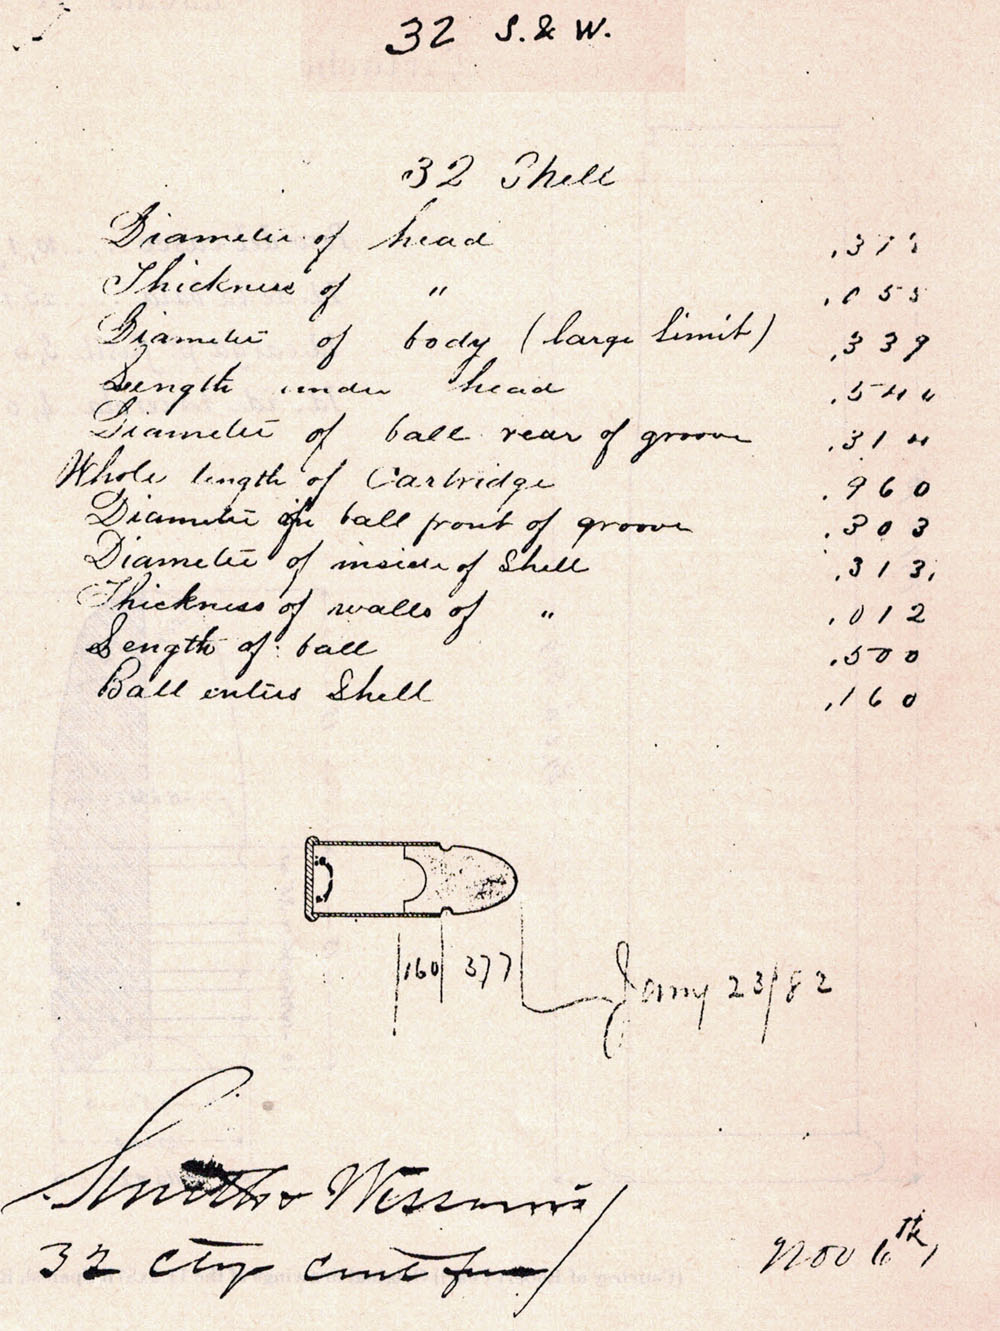 32 S. & W.
32 Shell
Diameter of head
Thickness of " .055
Diameter of body (large limit) .339
Length under head
Diameter of ball rear of groove .314
Whole length of Cartridge .960
Diameter of ball front of groove .303
Diameter of inside of Shell .313
Thickness of walls of " .012
Length of ball .500
Ball enters Shell .160
160 377
Jany 23/82
Smith & Wesson's
32 ctg cent fire
Nov 6th